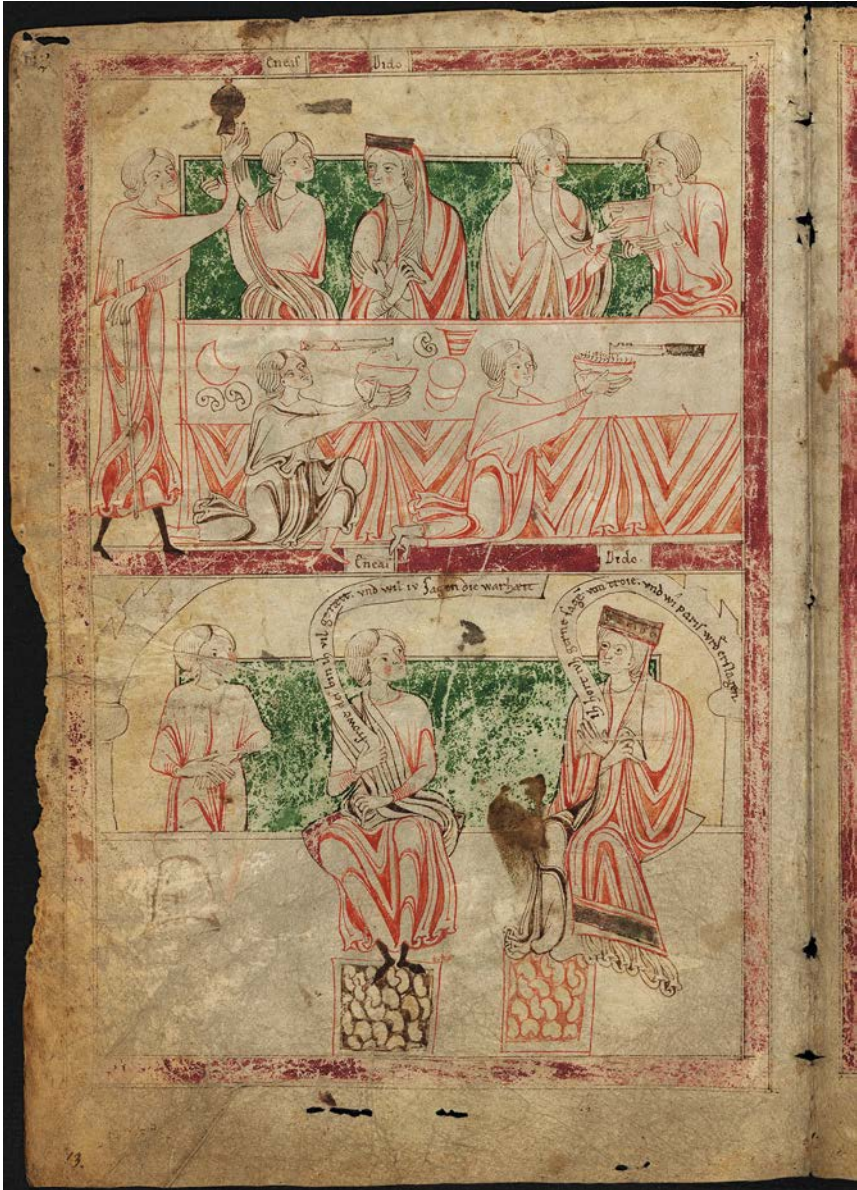 Eneas Dido
Eneas Dido.
frowe der bin ih vil geræit. vnd wil iv sagen die warhæit
ih hore vil gerne sagē. von troie. vnd wi paris wrd erslagen.
13.